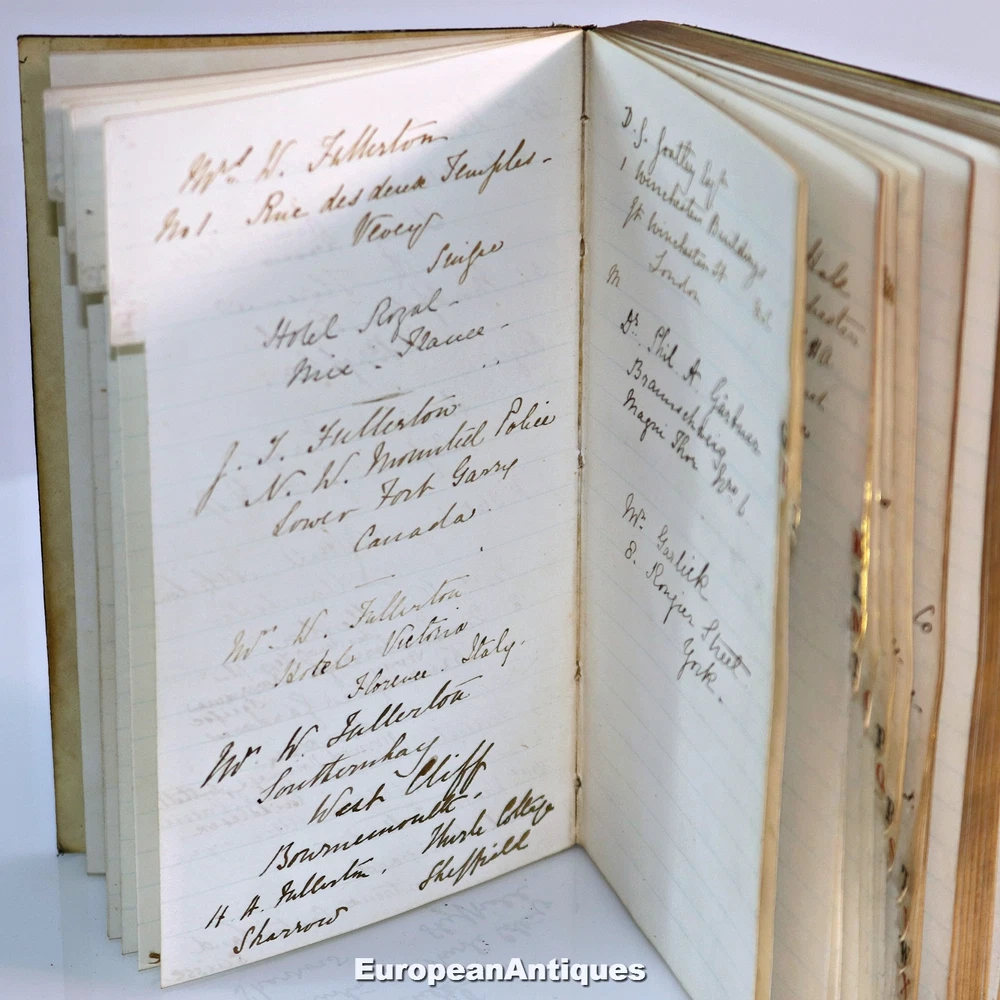 Mrs W. Fullerton
No 1. Rue des deux Temples -
Vevey
Hotel Royal -
Nice - France -
J. T. Fullerton
N. W. Mounted Police
Lower Fort Garry
Canada.
Mrs W. Fullerton
Hotel Victoria
Florence. Italy.
Mrs W. Fullerton
Southernhay
West Cliff
Bournemouth.
H A. Fullerton. Thirsle Cottage
Sharrow Sheffield
D. S.
1 Winchester Buildings
Gt Winchester St
London
M
Dr. Phil. A
Braunschweig
Magni Thor
Mr Garlick
8. Street
York.
Hale
Co
EuropeanAntiques